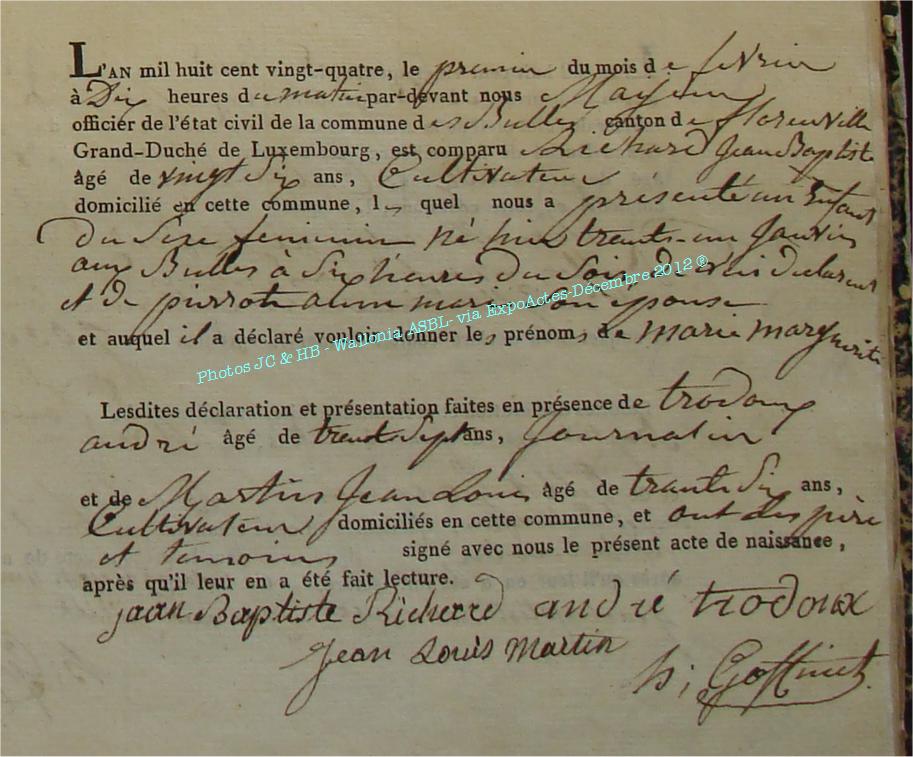 L'AN mil huit cent vingt-quatre, le premier du mois de fevrier
à Dix heures du matin par-devant nous Mayeur
officier de l'état civil de la commune des Bulles canton de florenville
Grand-Duché de Luxembourg, est comparu Richard Jean Baptiste
âgé de vingt Six ans, Cultivateur
domicilié en cette commune, le quel nous a présenté un Enfant
du Sexe feminin né hier trente-un Janvier
aux Bulles à Six heures du Soir, de lui declarant
et de pierrot anne marie son épouse
et auquel il a déclaré vouloir donner les prénoms de marie marguerite
Photos JC & HB - Wallonia ASBL- via ExpoActes-Décembre 2012 ®
Lesdites déclaration et présentation faites en présence de trodoux
andré âgé de trente Sept ans, Journalier
et de Martin Jean Louis âgé de trante Six ans,
Cultivateur domiciliés en cette commune, et ont les père
et temoins signé avec nous le présent acte de naissance,
après qu'il leur en a été fait lecture.
jean Baptiste Richerd andré trodoux
Jean Louis Martin
h; Goffinet